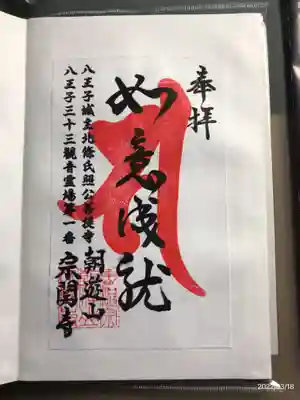 奉拝
如意成就
朝遊山
宗関寺
八王子城主北條氏照公菩提寺
八王子三十三観音霊場第一番
2022/03/18